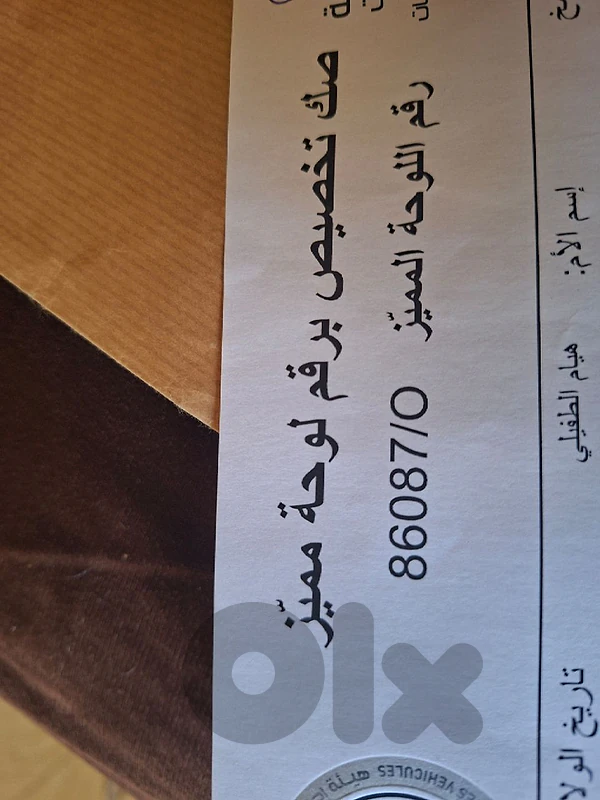 صك تخصيص برقم لوحة مميّز
رقم اللوحة المميّز 86087/O
إسم الأم: هيام الطفيلي
تاريخ
olx
VEHICULES
هيئة